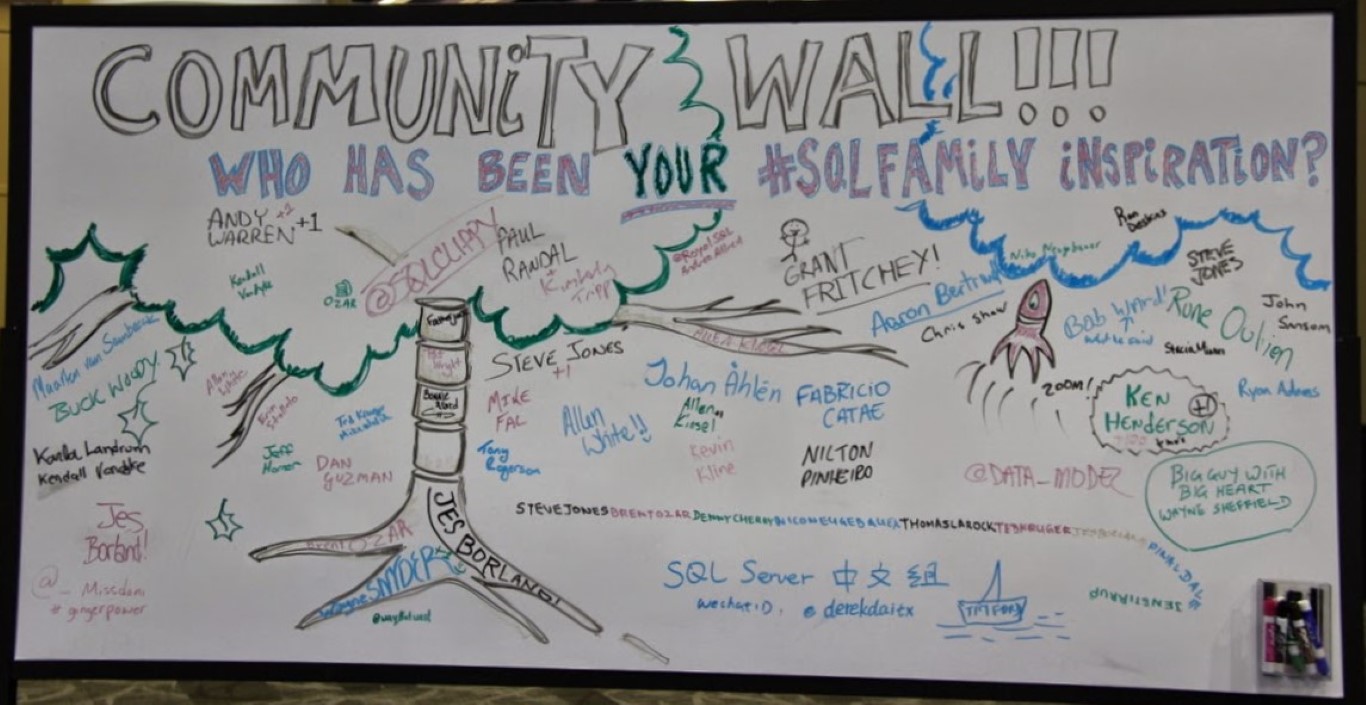 COMMUNiTY WALL!!!
WHO HAS BEEN YOUR #SQLFAMiLY iNSPiRATiON?
ANDY +2
WARREN +1
@SQLCLIPPY
PAUL
RANDAL
+
Kimberly
Tripp
@RoyalSQL
Andrea Allred
GRANT
FRITCHEY!
Aaron Bertrand
Chris Shaw
Niko Neugebauer
Ron
Deskins
STEVE
JONES
Bob Ward!
Rune Ovlien
John
Sansom
Stacia Misner
Ryan Adams
Kendall
VanDyke
OZAR
BUCK WOODY.
Allen
White
Erin
Stellato
Jeff
Ted Krueger
DAN
GUZMAN
Karla Landrum
Kendall Vandyke
Jes
Borland!
@_Missdani
# gingerpower
STEVE JONES
+1
MIKE
FAL
Tony
Rogerson
Allen
White!!
Johan Åhlén
Allen
Kinsel
Kevin
Kline
FABRICIO
CATAE
NILTON
PINHEIRO
ALLEN KINSEL
ZOOM!
KEN +1
HENDERSON
@DATA_MODEZ
BIG GUY WITH
BIG HEART
WAYNE SHEFFIELD
STEVEJONESBRENTOZARDENNYCHERRYNICONEUGEBAUERTHOMASLAROCKTEDKRUGERJESBORLANDPINALDALE
JENSTIRRUP
Brent OZAR
JES BORLAND!
Wayne SNYDER
SQL Server 中文组
wechatID: @derekdaitx